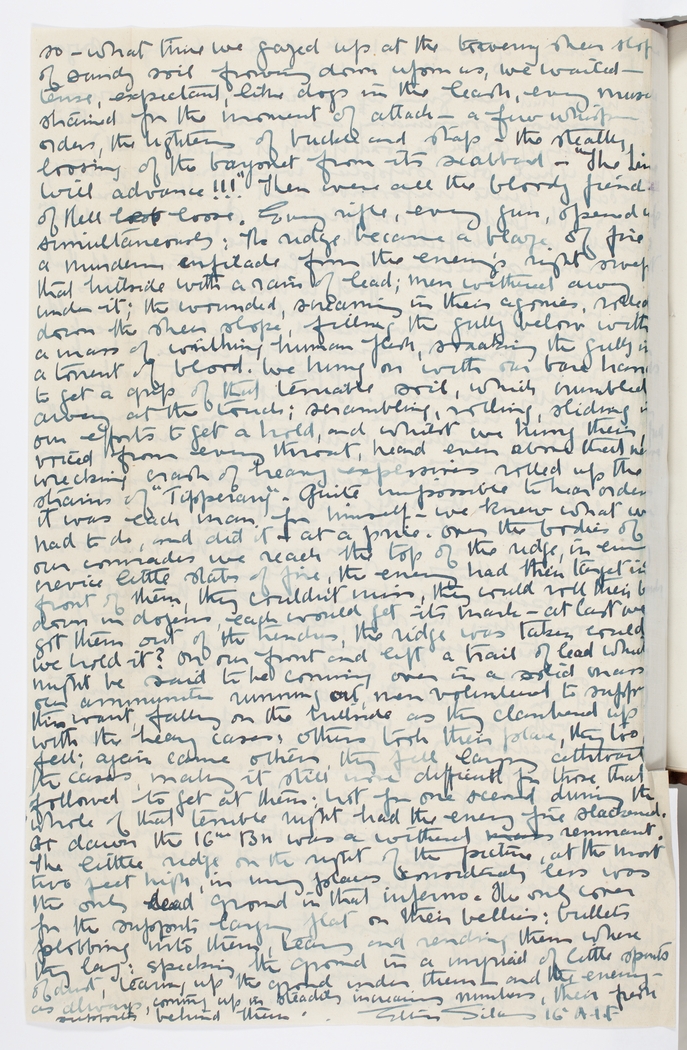 so – what time we gazed up at the towering sheer slop
of sandy soil frowning down upon us, we waited –
tense, expectant, like dogs in the leash, every musc
strained for the moment of attack – a few whisp
orders, the tightening of buckle and strap – the stealthy
loosing of the bayonet from its scabbard – "The lin
will advance !!!" Then were all the bloody fiends
of Hell loose. Every rifle, every gun, opened u
simultaneously; The ridge became a blaze of fire
a murderous enfilade from the enemy's right swep
that hillside with a rain of lead; men withered away
under it; the wounded, screaming in their agonies, rolled
down the sheer slope, filling the gully below with
a mass of writhing human flesh, soaking the gully in
a torrent of blood. We hung on with our bare hand
to get a grip of that terrible soil, which crumbled
away at the touch; scrambling, rolling, sliding in
our efforts to get a hold, and whilst we hung there,
voiced from every throat, heard even above that ne
wrecking crash of heavy explosives rolled up the
strains of "Tipperary" – Quite impossible to hear order
it was each man for himself – we knew what w
had to do, and did it – at a price. Over the bodies of
our comrades we reach the top of the ridge, in every
crevice little stabs of fire, the enemy had their target in
front of them, they couldn't miss, they would roll their b
down in dozens, each would get its mark – at last we
got them out of the trenches, the ridge was taken could
we hold it? On our front and left a trail of lead what
might be said to be coming over in a solid mass
our ammunition running out, men volunteered to supply
this want, falling on the hillside as they clambered up
with the heavy cases; others took their place, they too
fell; again came others, they fell, laying
the cases, making it still more difficult for those that
followed to get at them; not for one second during the
whole of that terrible night had the enemy fire slackened.
At dawn the 16th Bn was a withered remnant.
The little ridge on the right of the picture, at the most
two feet high, in many places considerably less was
the only dead ground in that inferno. The only cover
for the supports laying flat on their bellies: bullets
plobbing into them, tearing and rending them where
they lay; specking the ground in a myriad of little spurts
of dust, tearing up the ground under them – and the enemy –
as always, coming up in steadily increasing numbers, their fresh
supports behind them. Ellis Silas 16 A.I.F